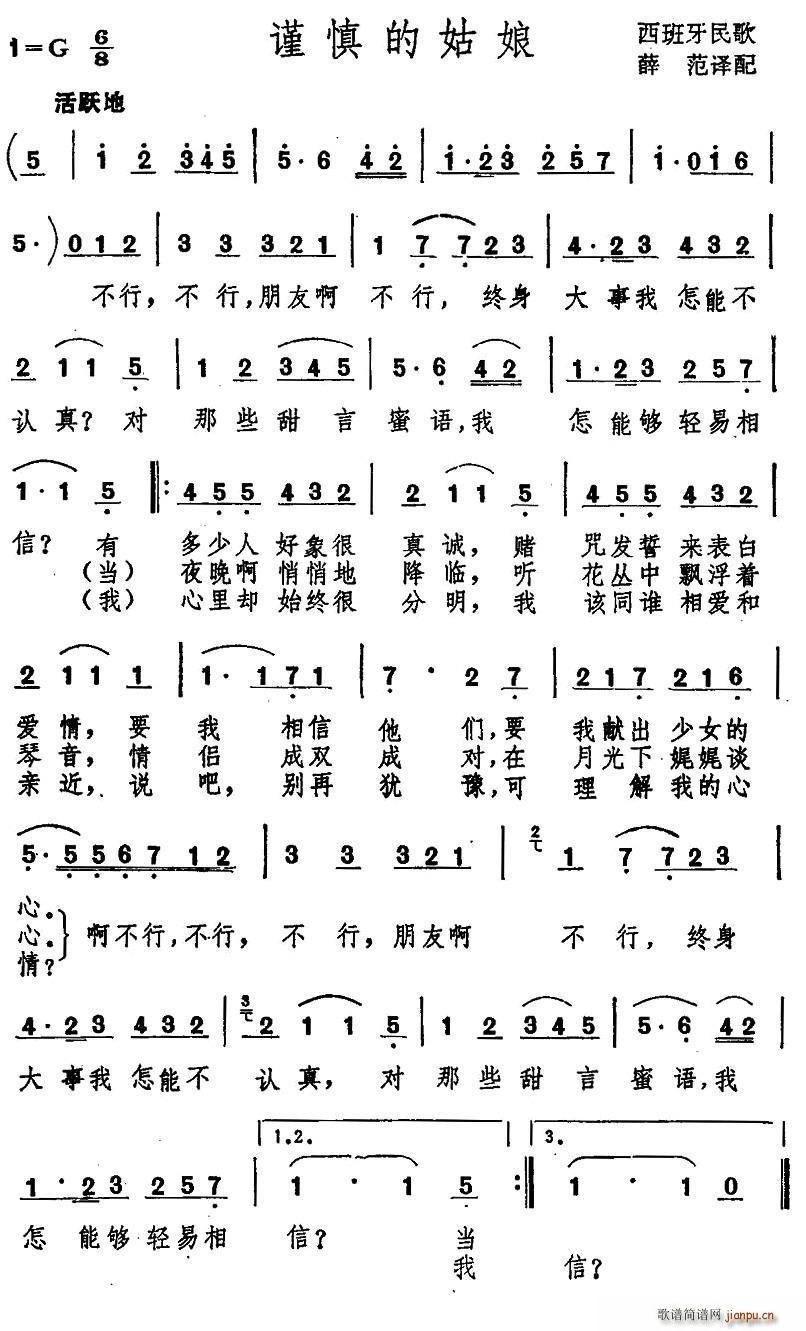 谨慎的姑娘
1=G 6/8
西班牙民歌
薛 范译配
活跃地
(5 | 1 2 345 | 5·6 42 | 1·23 257 | 1·016 |
5·) 012 | 3 3 321 | 1 7 723 | 4·23 432 |
不行，不行,朋友啊 不行，终身 大事我怎能不
2 11 5 | 1 2 345 | 5·6 42 | 1·23 257 |
认真？对 那些甜言蜜语,我 怎能够轻易相
1·1 5 ‖: 455 432 | 2 11 5 | 455 432 |
信？ 有 多少人好象很 真诚，赌 咒发誓来表白
（当）夜晚啊悄悄地 降临，听 花丛中飘浮着
（我）心里却始终很 分明，我 该同谁相爱和
2 11 1 | 1·171 | 7·2 7 | 217 216 |
爱情，要 我 相信 他 们,要 我献出少女的
琴音，情 侣 成双 成 对,在 月光下娓娓谈
亲近，说 吧，别再 犹 豫,可 理解我的心
5·5567 12 | 3 3 321 | 2 1 7 723 |
心。
心。 啊不行,不行，不 行，朋友啊 不 行，终身
情？
4·23 432 | 3 2 11 5 | 1 2 345 | 5·6 42 |
大事我怎能不 认真，对 那些甜言蜜语,我
1.2. 3.
1·23 257 | 1·1 5 :‖ 1·1 0 ‖
怎能够轻易相 信？ 当
我 信？
歌谱简谱网 jianpu.cn